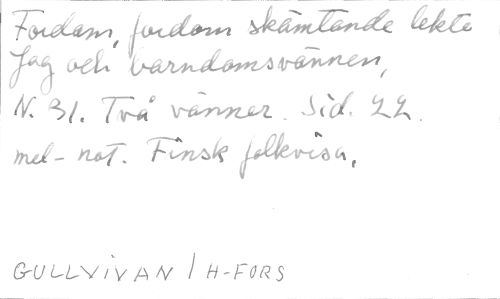 Fordom, fordom skämtande lekte
Jag och barndomsvännen,
N. 31. Två vänner. Sid. 22.
mel-not. Finsk folkvisa,
GULLVIVAN / H-FORS